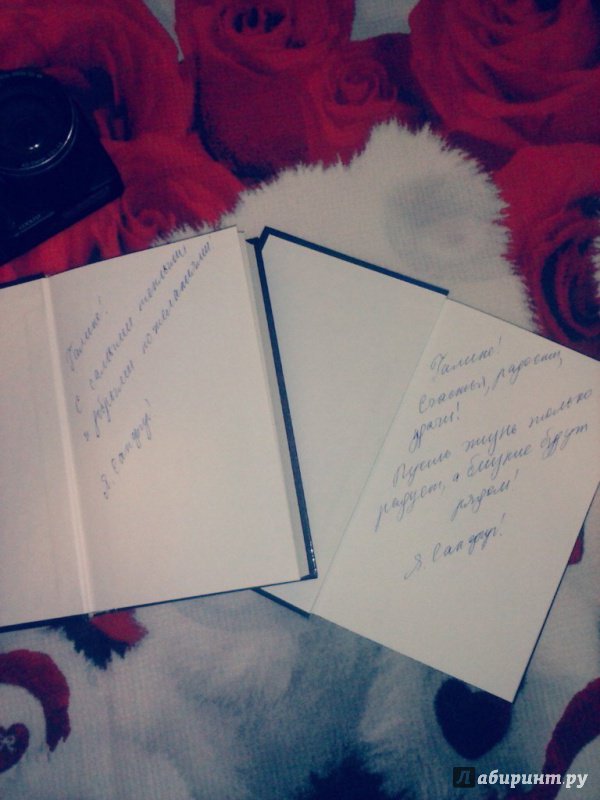 Галине!
с самыми теплыми
и добрыми пожеланиями
Я. Сапфир!
Галине!
Счастья, радости,
удачи!
Пусть жизнь только
радует, а близкие будут
рядом!
Я. Сапфир!
Лабиринт.ру